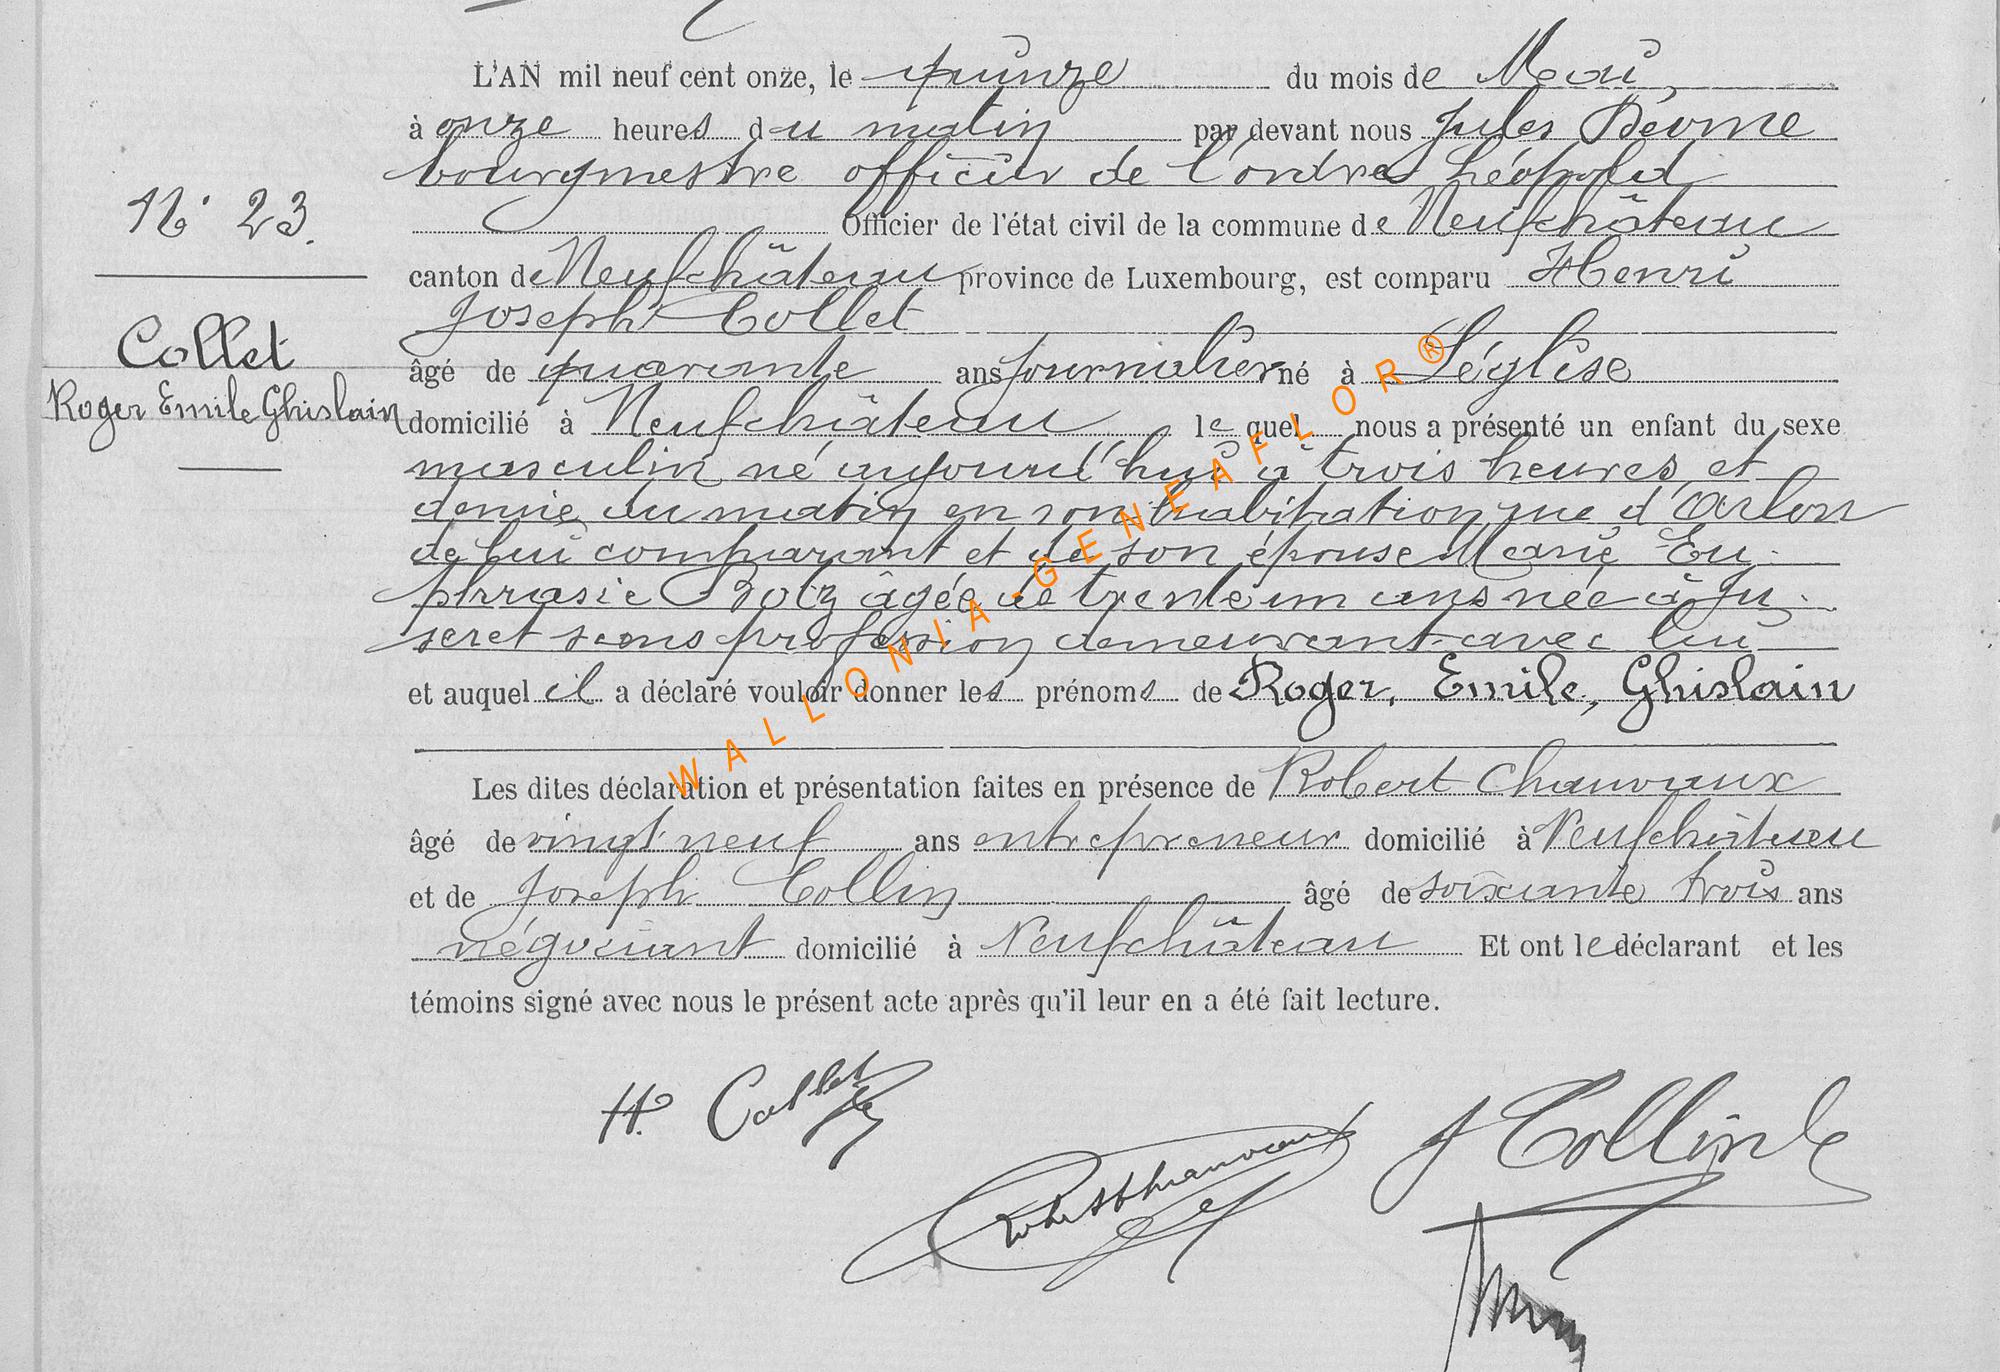 L'AN mil neuf cent onze, le quinze du mois de Mai,
à onze heures du matin par devant nous Jules
bourgmestre officier de l'ordre Léopold
N° 23.
Officier de l'état civil de la commune de Neufchâteau
canton de Neufchâteau province de Luxembourg, est comparu Henri
Joseph Collet
Collet
âgé de quarante ans journalier né à Léglise
Roger Emile Ghislain
domicilié à Neufchâteau lequel nous a présenté un enfant du sexe
masculin né aujourd'hui à trois heures et
demie du matin en son habitation rue d'Arlon
de lui comparant et de son épouse Marie Eu-
phrasie Bolz âgée de trente un ans née à Ju-
seret sans profession demeurant avec lui
et auquel il a déclaré vouloir donner les prénoms de Roger, Emile, Ghislain
Les dites déclaration et présentation faites en présence de Robert Chauvaux
âgé de vingt neuf ans entrepreneur domicilié à Neufchâteau
et de Joseph Collin âgé de soixante trois ans
négociant domicilié à Neufchâteau Et ont le déclarant et les
témoins signé avec nous le présent acte après qu'il leur en a été fait lecture.
H. Collet
Robert Chauvaux
J Collin
WALLONIA-GENEAFLOR®